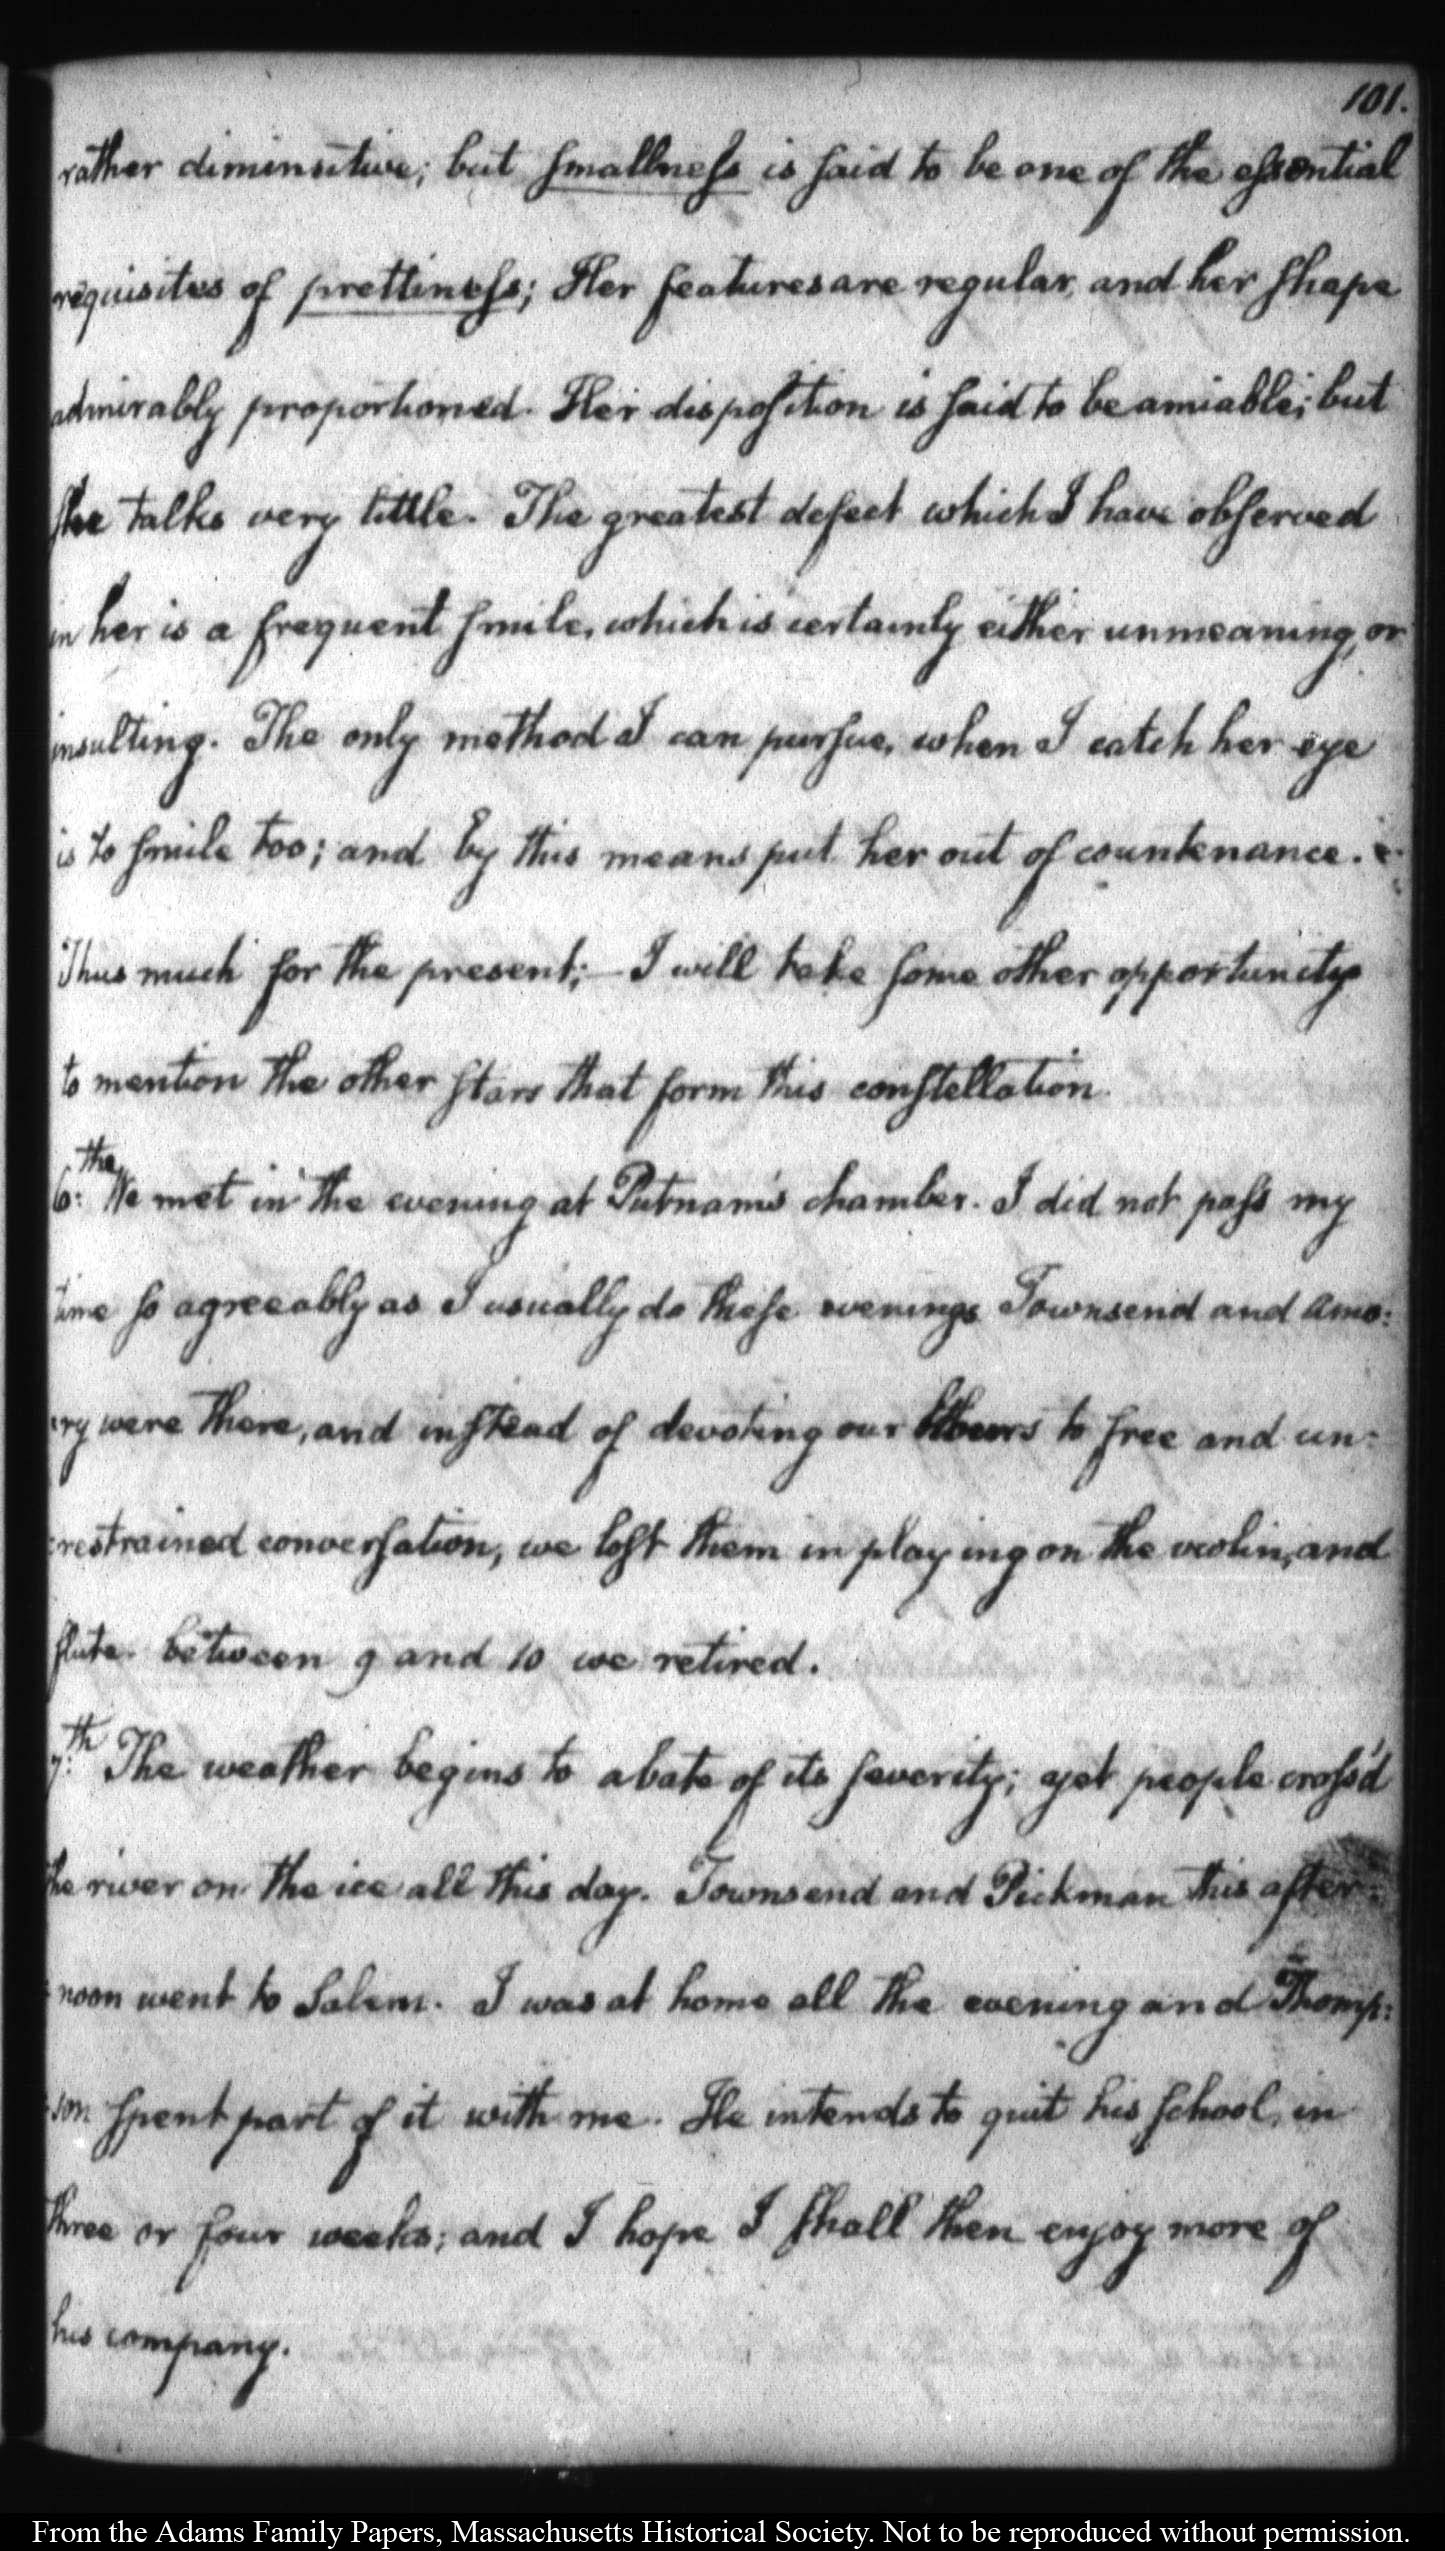 101.
rather diminutive; but smallness is said to be one of the essential
requisites of prettiness; Her features are regular, and her shape
admirably proportioned. Her disposition is said to be amiable; but
she talks very little. The greatest defect which I have observed
in her is a frequent smile, which is certainly either unmeaning, or
insulting. The only method I can pursue, when I catch her eye
is to smile too; and by this means put her out of countenance.
Thus much for the present;—I will take some other opportunity
to mention the other stars that form this constellation.
6:the We met in the evening at Putnam's chamber. I did not pass my
time so agreeably as I usually do these evenings Townsend and Amo:
:ry were there, and instead of devoting our hours to free and un:
:restrained conversation, we lost them in playing on the violin, and
flute. between 9 and 10 we retired.
7:th The weather begins to abate of its severity; yet people cross'd
the river on the ice all this day. Townsend and Pickman this after:
:noon went to Salem. I was at home all the evening and Thomp:
:son spent part of it with me. He intends to quit his school, in
three or four weeks; and I hope I shall then enjoy more of
his company.
From the Adams Family Papers, Massachusetts Historical Society. Not to be reproduced without permission.